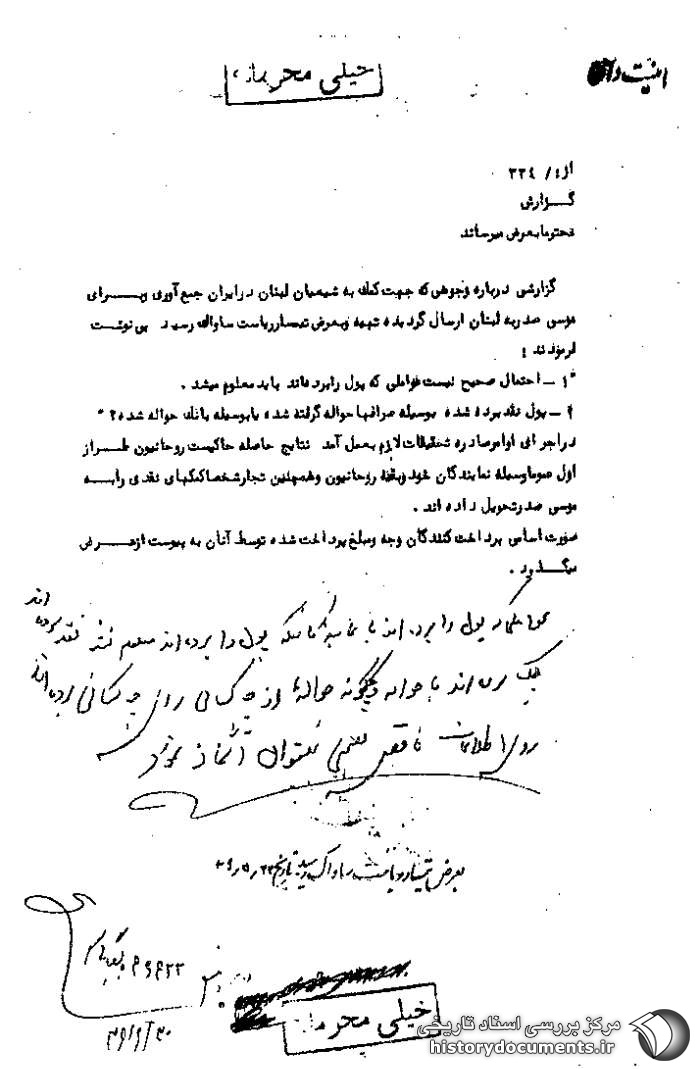 خیلی محرمانه
از ۱/ ۳۳٤
گزارش
محترما بعرض میرساند
گزارشی درباره وجوهی که جهت کمک به شیعیان لبنان در ایران جمع آوری وبرای
موسی صدر به لبنان ارسال گردیده تهیه وبعرض تیمسار ریاست ساواک رسید پی نوشت
فرمودند :
"۱ ـ احتمال صحیح نیست عواملی که پول را برده اند باید معلوم میشد .
۲ ـ پول نقد برده شده بوسیله صرافها حواله گرفته شده یا بوسیله بانک حواله شده ؟ "
در اجرای اوامر صادره تحقیقات لازم بعمل آمد نتایج حاصله حاکیست روحانیون طراز
اول عموما وسیله نمایندگان خود وبقیه روحانیون وهمچنین تجار شخصا کمکهای نقدی را به
موسی صدر تحویل داده اند .
صورت اسامی پرداخت کنندگان وجه ومبلغ پرداخت شده توسط آنان به پیوست از عرض
میگذرد .
پول را برده اند پول را برده اند نقد برده اند
برده اند یا حواله چگونه حواله از چه کسانی برای چه کسانی برده اند
روی اطلاعات ناقص نمیتوان اتخاذ نمود
بعرض تیمسار ریاست ساواک رسید تاریخ
خیلی محرمانه
مرکز بررسی اسناد تاریخی
historydocuments.ir